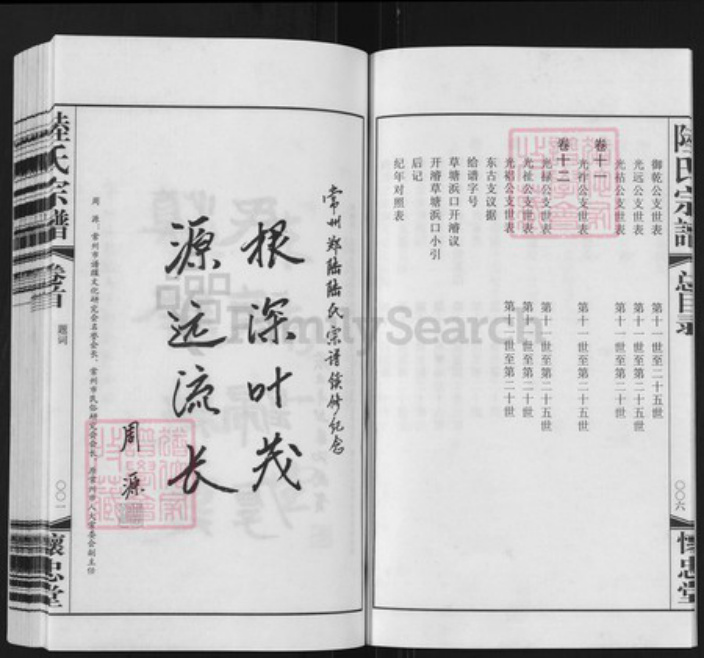 陆氏宗谱
总目录
〇〇六
怀忠堂
御乾公支世表 第十一世至二十五世
光远公支世表 第十一世至第二十五世
光枯公支世表 第十一世至第二十世
卷十一
光祚公支世表 第十一世至第二十五世
卷十二
光禄公支世表 第十一世至第二十五世
光祉公支世表 第十一世至第二十世
光裙公支世表 第十一世至第二十世
东古支议据
给谱字号
草塘浜口开濬议
开濬草塘浜口小引
后记
纪年对照表
常州郑陆陆氏宗谱续修纪念
根深叶茂
源远流长
周源
周源:常州市谱牒文化研究会名誉会长、常州市民俗研究会会长、原常州市人大常委会副主任
陆氏宗谱
卷首
题词
〇〇一
怀忠堂
FamilySearch